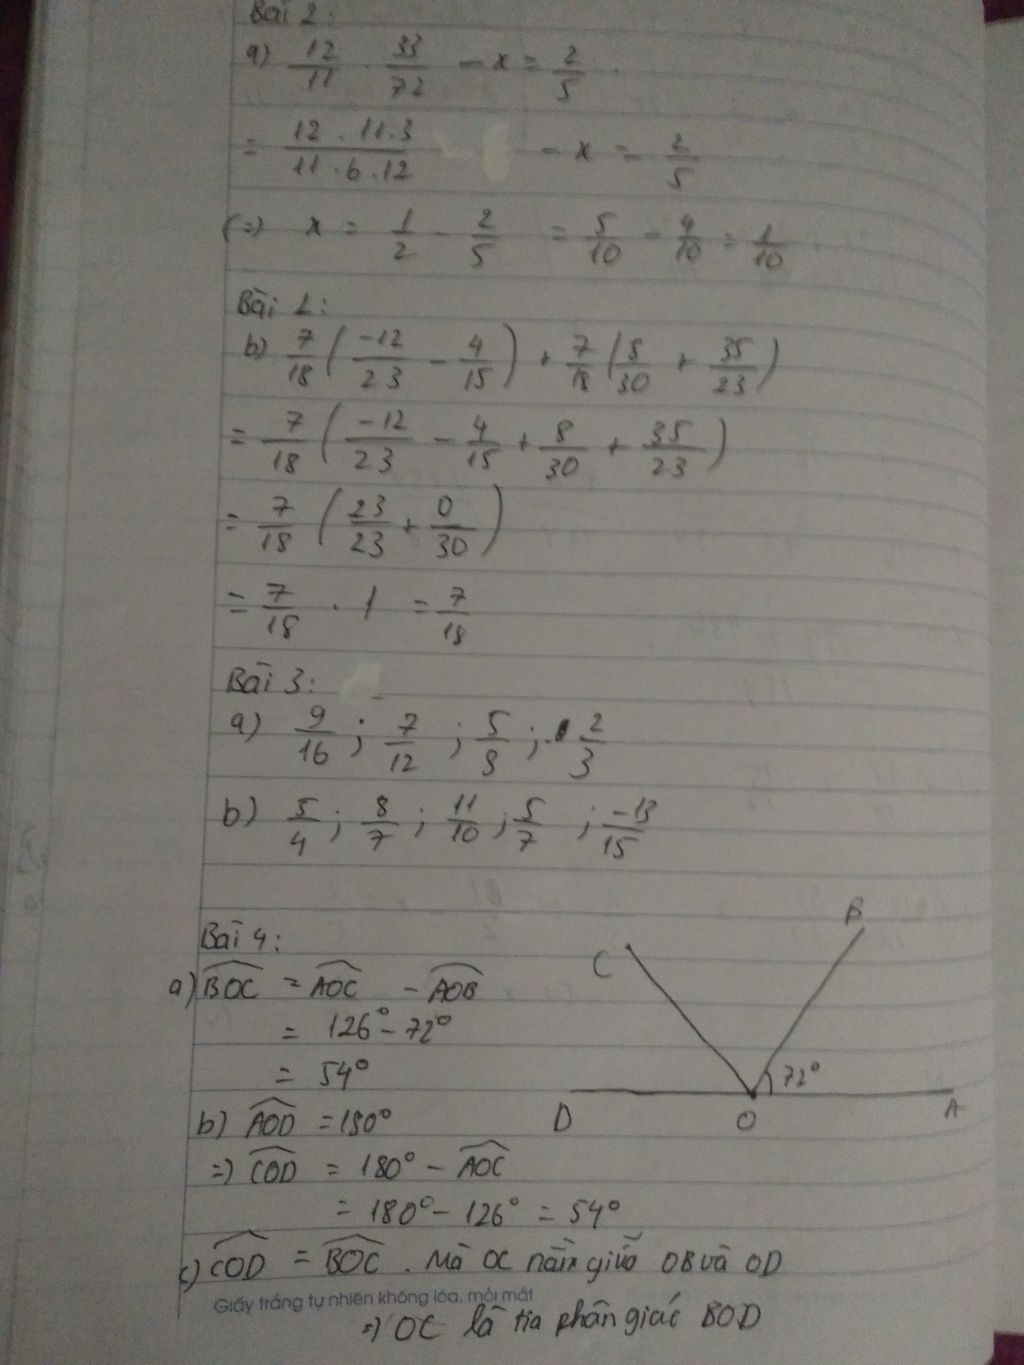 Bài 2:
a) 12/11 . 33/72 - x = 2/5
= 12 . 11 . 3 / 11 . 6 . 12 - x = 2/5
(=) x = 1/2 - 2/5 = 5/10 - 4/10 = 1/10
Bài 1:
b) 7/18 ( -12/23 - 4/15 ) + 7/18 ( 8/30 + 35/23 )
= 7/18 ( -12/23 - 4/15 + 8/30 + 35/23 )
= 7/18 ( 23/23 + 0/30 )
= 7/18 . 1 = 7/18
Bài 3:
a) 9/16 ; 7/12 ; 5/8 ; 2/3
b) 5/4 ; 8/7 ; 11/10 ; 5/7 ; -13/15
Bài 4:
a) BOC = AOC - AOB
= 126° - 72°
= 54°
b) AOD = 180°
=) COD = 180° - AOC
= 180° - 126° = 54°
c) COD = BOC . Mà OC nằm giữa OB và OD
=) OC là tia phân giác BOD
B
C
72°
D
O
A
Giấy trắng tự nhiên không lóa, mỏi mắt